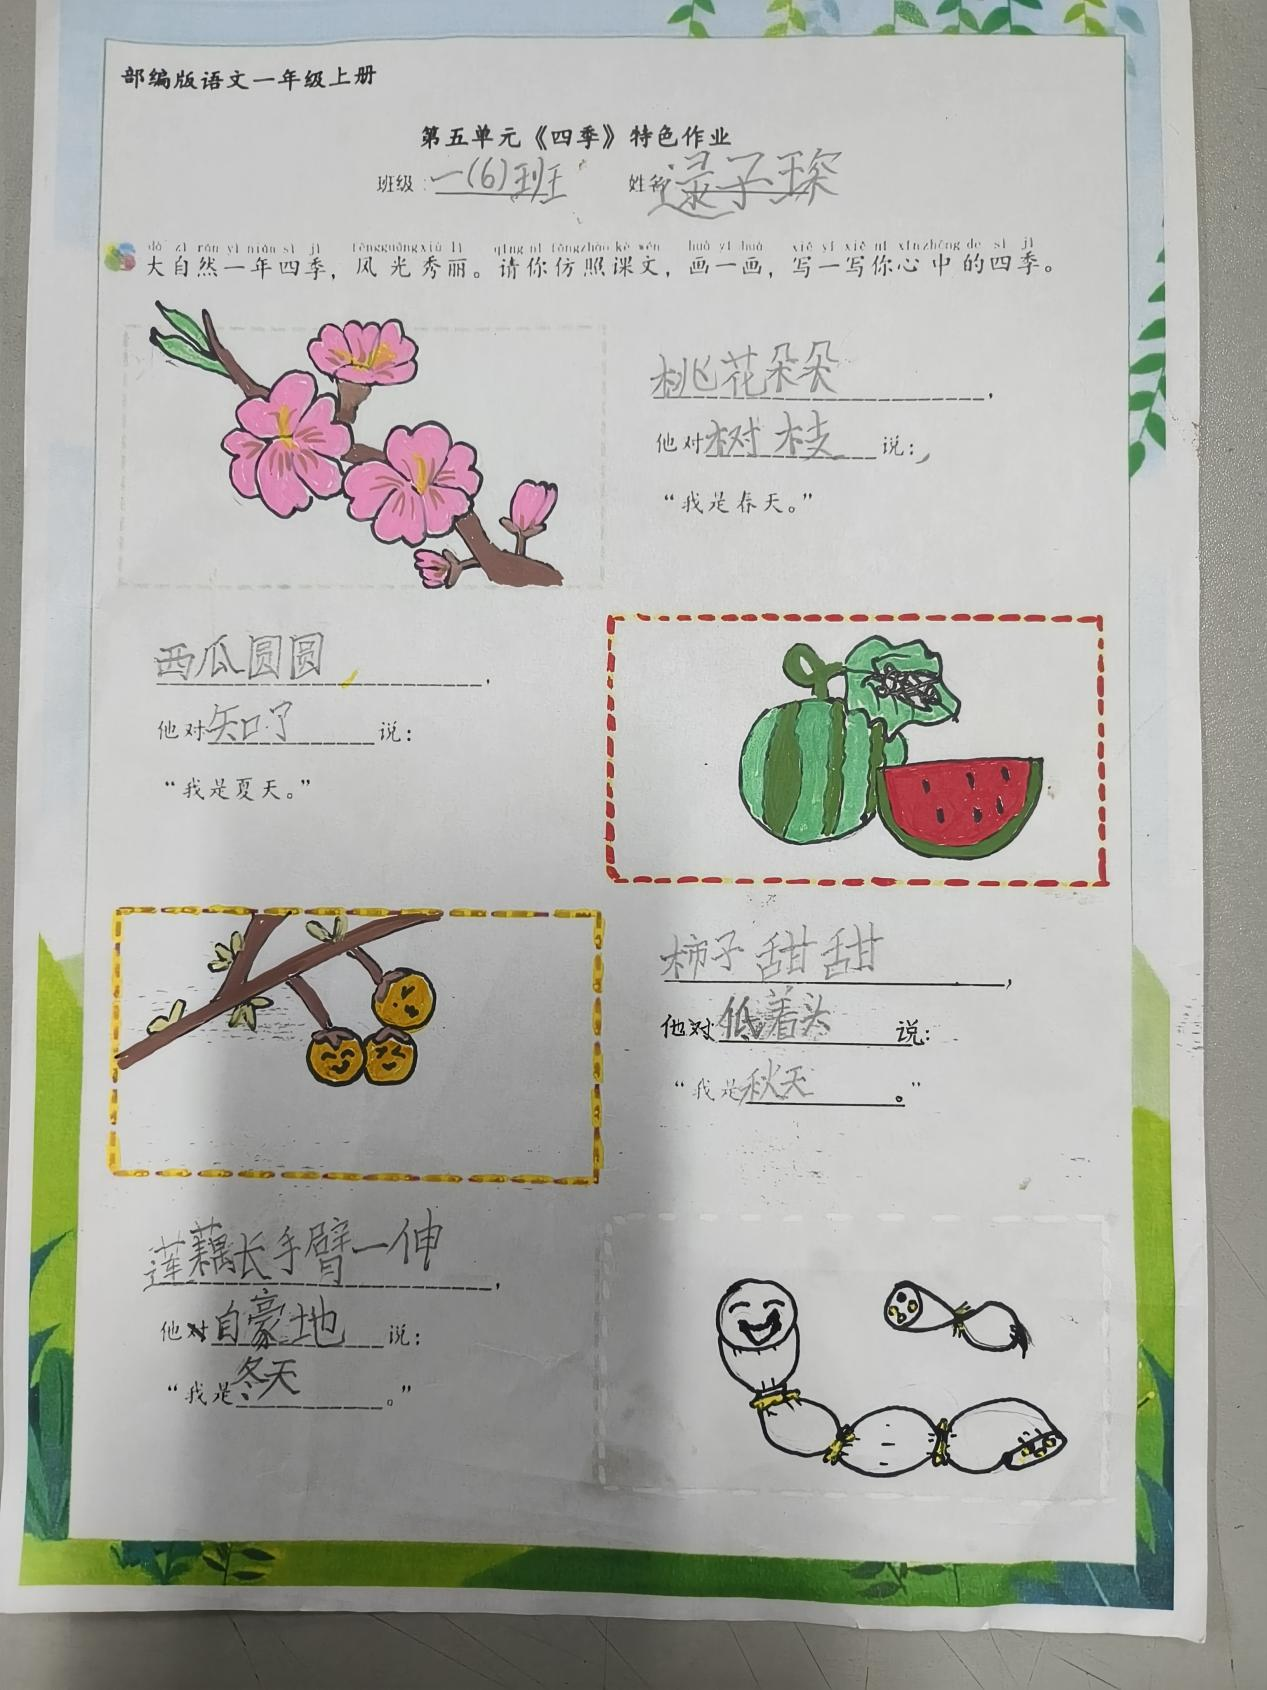 部编版语文一年级上册
第五单元《四季》特色作业
班级：一(6)班 姓名 逯子琛
dà zì rán yì nián sì jì fēngguāngxiù lì qǐng nǐ fǎngzhào kè wén huà yí huà xiě yì xiě nǐ xīnzhōng de sì jì
大自然一年四季，风光秀丽。请你仿照课文，画一画，写一写你心中的四季。
桃花朵朵，
他对树枝说：
“我是春天。”
西瓜圆圆，
他对知了说：
“我是夏天。”
柿子甜甜，
他对低着头说：
“我是秋天。”
莲藕长手臂一伸，
他对自豪地说：
“我是冬天。”